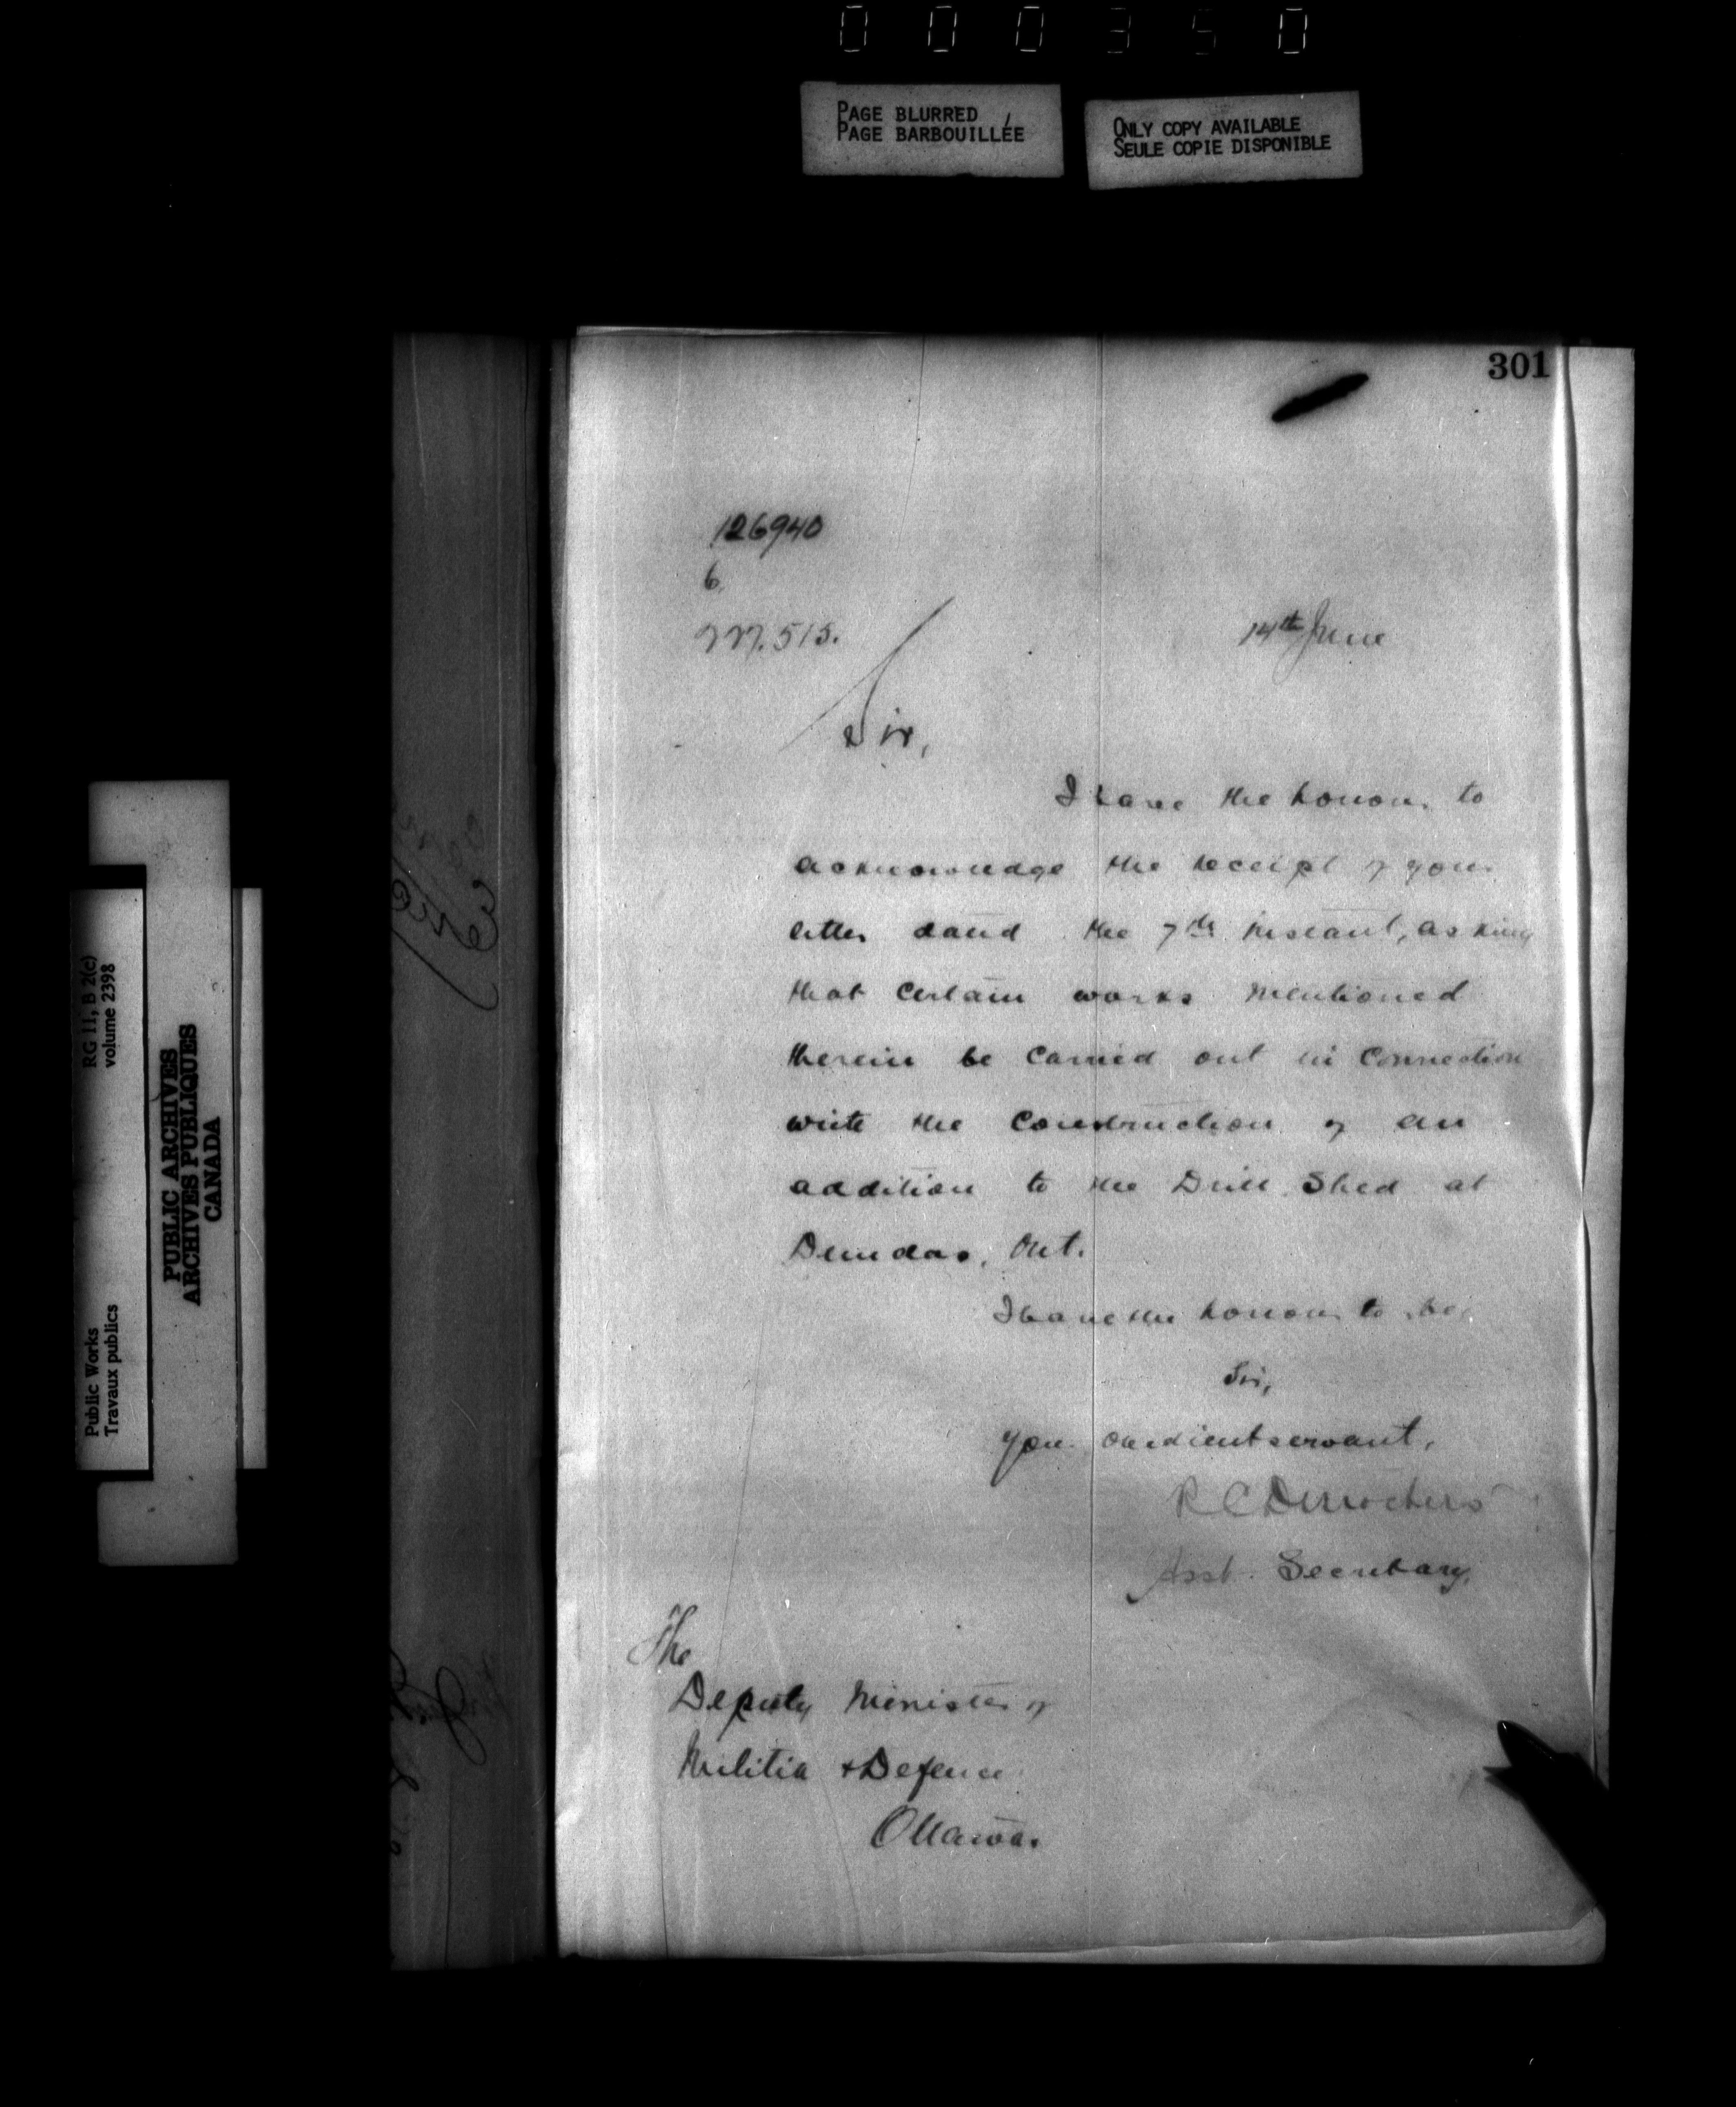 000350
PAGE BLURRED
PAGE BARBOUILLÉE
ONLY COPY AVAILABLE
SEULE COPIE DISPONIBLE
301
126940
6
14th June
Sir,
I have the honour to
acknowledge the receipt of your
letter dated the 7th instant, asking
that certain works mentioned
therein be carried out in connection
with the construction of an
addition to the Drill Shed at
Dundas, Ont.
I have the honour to be,
Sir,
your obedient servant,
R C Desrochers
Asst. Secretary.
The
Deputy Minister of
Militia & Defence
Ottawa.
RG 11, B 2(c)
volume 2398
Public Works
Travaux publics
PUBLIC ARCHIVES
ARCHIVES PUBLIQUES
CANADA